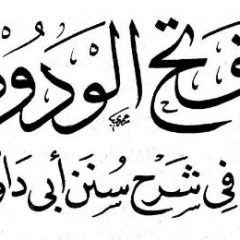 فتح الودود
في شرح سنن أبي داود